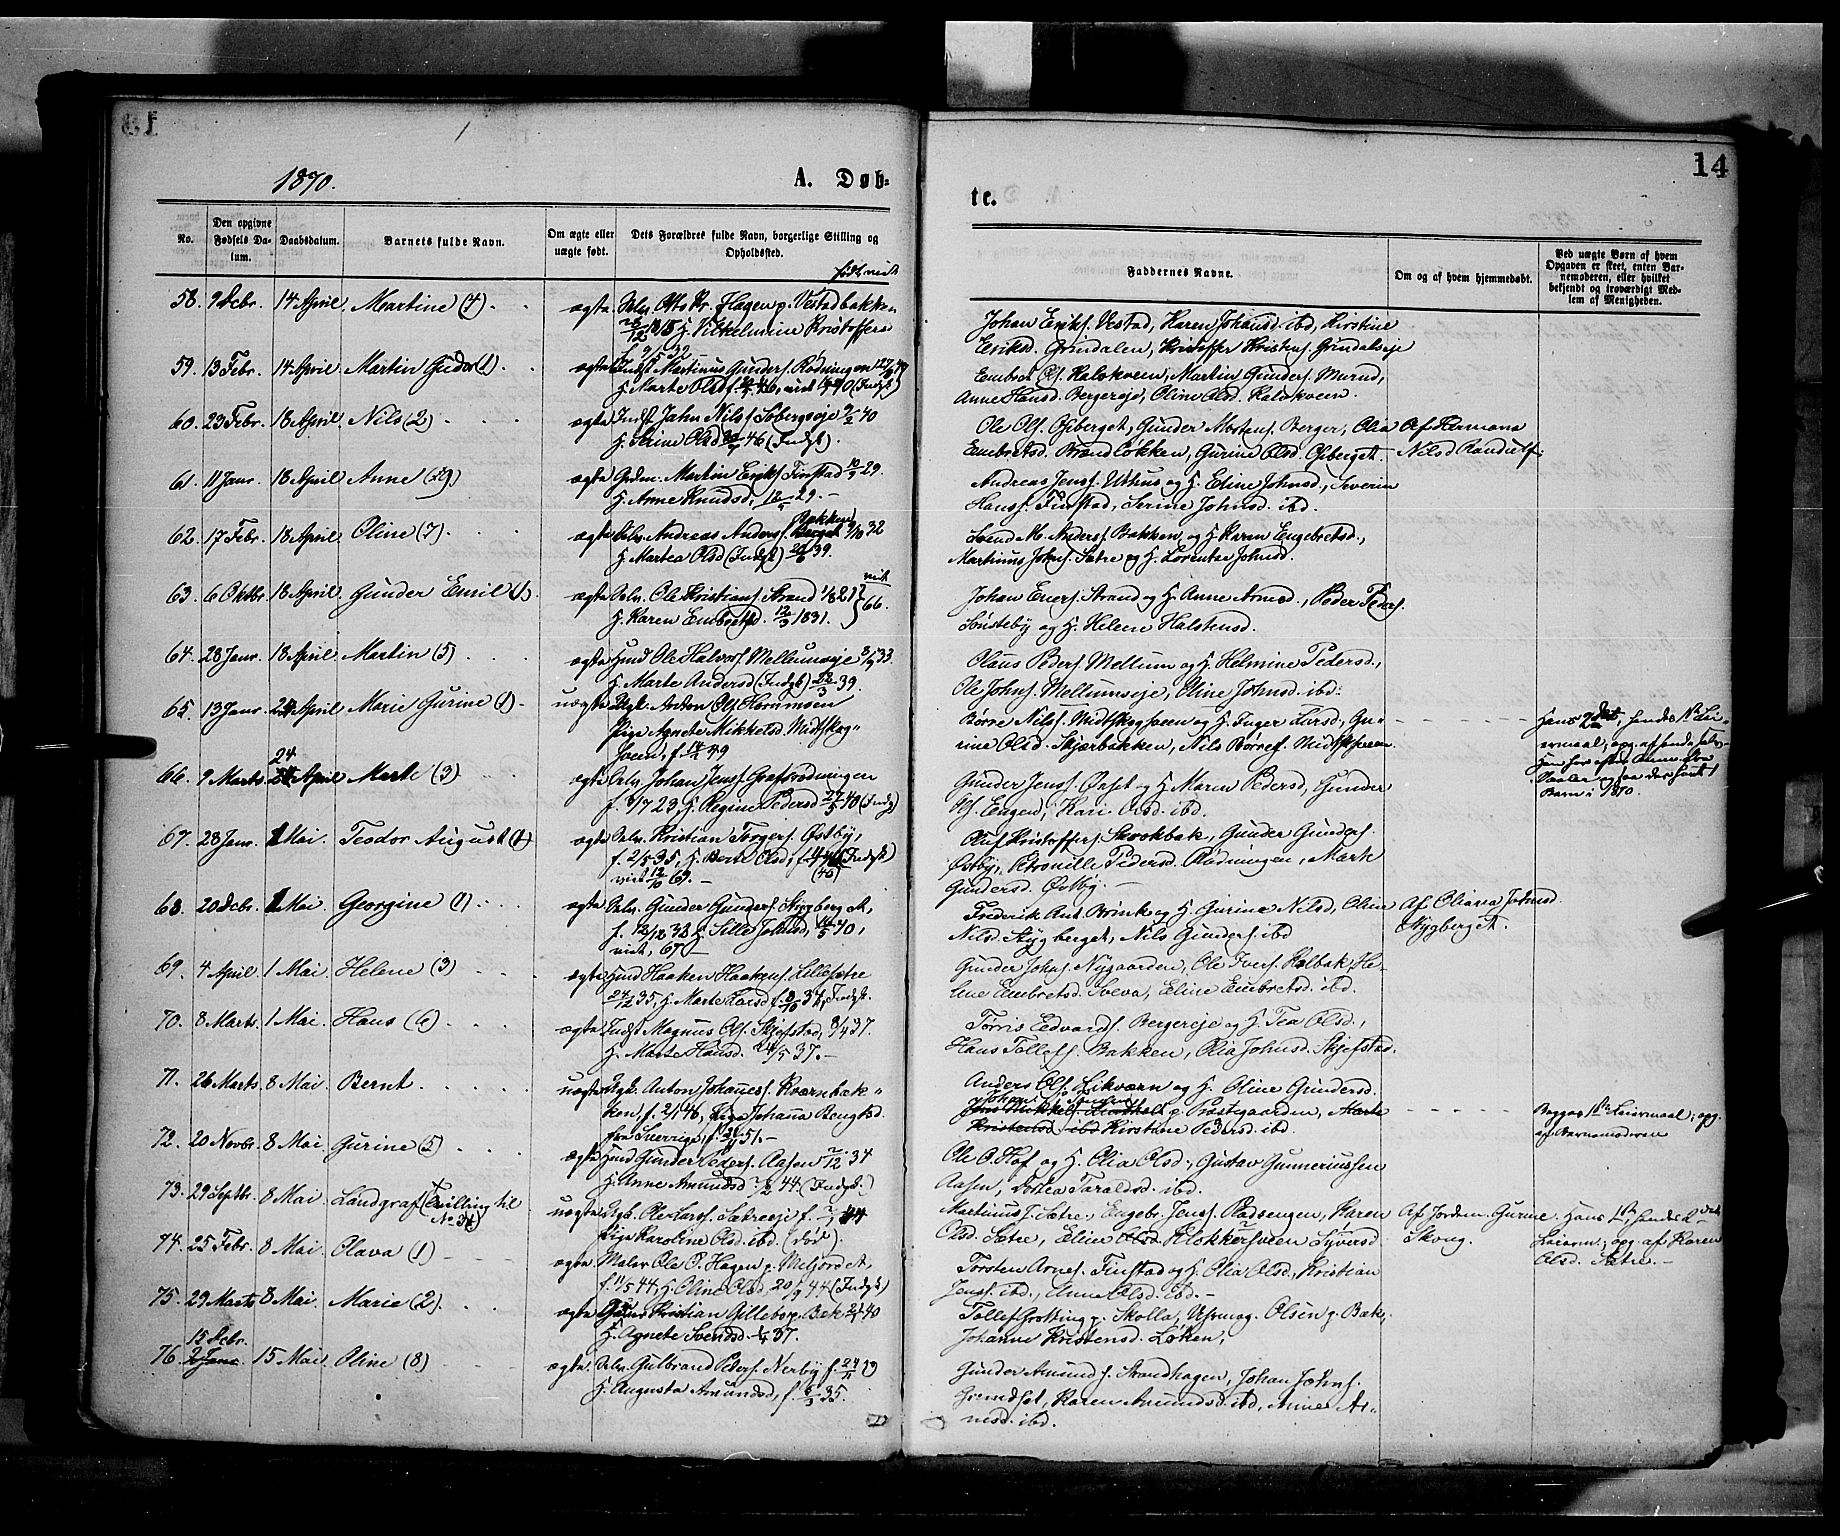 14
1870.
A. Døb-
te.
No.
Den opgivne Fødsels Da-tum.
Daabsdatum.
Barnets fulde Navn.
Om ægte eller uægte født.
Dets Forældres fulde Navn, borgerlige Stilling og Opholdssted.
født, viet
Faddernes Navne.
Om og af hvem hjemmedøbt.
Ved uægte Børn af hvem Opgaven er skeet, enten Bar-nemoderen, eller hvilket bekjendt og troværdigt Med-lem af Menigheden.
58. 9 Febr. 14 April Martine (4) ægte Otto Kr. Hagen p. Vestadbakken
H. Vilhelmine Kristoffersd
Johan Eriks. Vestad, Karen Johansd. ibd, Kirstine
Eriksd. Grindalen, Kristoffer Kristens. Grindalseje
59. 13 Febr. 14 April Martin Gudor (1) ægte Indst Martinus Gunders. Rødningen
H. Marte Olsd f. 46, viet (Indst)
Embret Ols. Kalskveen, Martin Gunders. Murud,
Anne Hansd. Bergereje, Oline Olsd. Kalskveen.
60. 23 Febr. 18 April Nils (2) ægte Indst John Nils. Sobergseje 40
H. Serine Olsd 46 (Indst).
Ole Ols. Gjberget, Gunder Mortens. Berger, Olia
Embretsd. Brændløkken, Gurine Olsd. Gjberget.
Af Formand
Nils Randulf.
61. 11 Janr. 18 April Anne (29) ægte Martin Eriks. Finstad 29.
H. Anne Knudsd, 29.
Andreas Jens. Uthus og H. Eline Johnsd., Severin
Hans. Finstad, Serine Johnsd. ibd.
62. 17 Febr. 18 April Oline (7) ægte Andreas Anders. Bakken 9/10 32
H. Martea Olsd (Indst) 39.
Svend M. Anders. Bakken og H. Karen Engebretsd.,
Martinus Johns. Sætre og H. Lorentse Johnsd.
63. 6 Oktbr. 18 April Gunder Emil (1). ægte Ole Kristians. Strand 1/8 21 } viet 66.
H. Karen Embretsd. 12/3 1831.
Johan Eners. Strand og H. Anne Arnesd., Peder Peders.
Sørsteby og H. Helene Halstensd.
64. 28 Janr. 18 April Martin (5) ægte Husm Ole Halvors. Mellumseje 33.
H. Marte Andersd (Indst) 22/3 39.
Olaus Peders. Mellum og H. Helmine Pedersd.,
Ole Johns. Mellumseje, Oline Johnsd. ibd.
65. 13 Janr. 24 April Marie Gurine (1) uægte Ugk. Anton Ols. Hornmoen
Pige Agnete Mikkelsd. Midtskog-
sveen, f. 49
Børre Nils. Midtskogsveen og H. Inger Larsd., Gu-
rine Olsd. Skjærbakken, Nils Børres. Midtskogsveen
Hans 2det, hendes 1ste Lei-
ermaal; opg. af hende selv
Barn i 1870.
66. 9 Marts 24 April Marte (3) ægte Johan Jens. Grafsrødningen
f. 9/7 29 H. Regine Pedersd 40 (Indst)
Gunder Jens. Ørset og H. Maren Pedersd, Gunder
Ols. Engen, Kari Olsd. ibd.
67. 28 Janr. 1 Mai. Teodor August (1) ægte Kristian Torgers. Østby,
f. 2/5 35, H. Berte Olsd, (Indst)
viet 12/10 69.
Oluf Kristoffers. Skrokbak, Gunder Gunders.
Østby, Petronille Pedersd. Rødningen, Marte
Gundersd. Østby.
68. 20 Febr. 1 Mai Georgine (1) ægte Gunder Gunders. Stygberg
f. 12/12 38 H. Sille Johnsd, 40,
viet, 67
Frederik Ant. Brink og H. Gurine Nilsd, Oline
Nilsd. Stygberget, Nils Gunders. ibd
Af Oliava Johnsd.
Stygberget.
69. 4 April 1 Mai Helene (3) ægte Husm Haaken Haakens. Lillesætre
24/12 35, H. Marte Larsd f. 37, Indst.
Gunder Johns. Nygaarden, Ole Ivers. Kolbak, He-
lene Embretsd. Sveva, Eline Embretsd. ibd.
70. 8 Marts. 1 Mai. Hans (6) ægte Indst Magnus Ols. Skjefstad, 37.
H. Marte Hansd. 24/5 37.
Tørris Edvards. Bergereje og H. Tea Olsd.,
Hans Tollefs. Bakken, Olia Johnsd. Skjefstad.
71. 26 Marts 8 Mai Bernt uægte Ugk. Anton Johanes. Kværnbæk-
ken, f. 46, Pige Johanna Bengtsd.
fra Sverrige, f. 51.
Anders Ols. Kilkværn og H. Oline Gundersd.
p. Præstegaarden, Marte
Kristensd. ibd Kirstine Pedersd. ibd.
Begges 1ste Leiermaal; opg.
af Barnemoderen
72. 20 Novbr. 8 Mai Gurine (5) ægte Husm Gunder Peders. Aasen 34
H. Anne Amundsd 44. (Indst.)
Ole O. Hof og H. Olia Olsd., Gustav Gunneriussen
Aasen, Dortea Taraldsd. ibd.
73. 29 Septbr. 8 Mai Landgraf (Tvilling til No 34) uægte Ugk. Ole Lars. Sætreeje f. 44
Pige Karoline Olsd. ibd. (død).
Martinus J. Sætre, Engebr. Jens. Pladsengen, Karen
Olsd. Sætre, Eline Klokkersveen Syversd.
Af Jordem. Gurine
Skoug.
Hans 1ste, hendes 2det
Leierm; opg. af Karen
Olsd. Sætre.
74. 25 Febr. 8 Mai Olava (1) ægte Maler Ole O. Hagen p. Melford
f. 11/5 44, H. Oline Olsd, 20/9 44 (Indst)
Torsten Arnes. Finstad og H. Olia Olsd, Kristian
Jens. ibd., Anne Olsd. ibd.
75. 29 Marts 8 Mai. Marie (2) ægte Kristian Gillebo p. Bæk 40
H. Agnete Svendsd. 37.
Tollef Grotting p. Skolla, Olsen p. Bæk,
Johanne Kristensd. Løken,
76. 15 Febr. 15 Mai Oline (8) ægte Gulbrand Peders. Nerby f.
H. Augusta Amundsd, f. 35.
Gunder Amunds. Strandhagen, Johan Johns.
Grundset, Karen Amundsd. ibd, Anne Ar-
nesd. ibd.